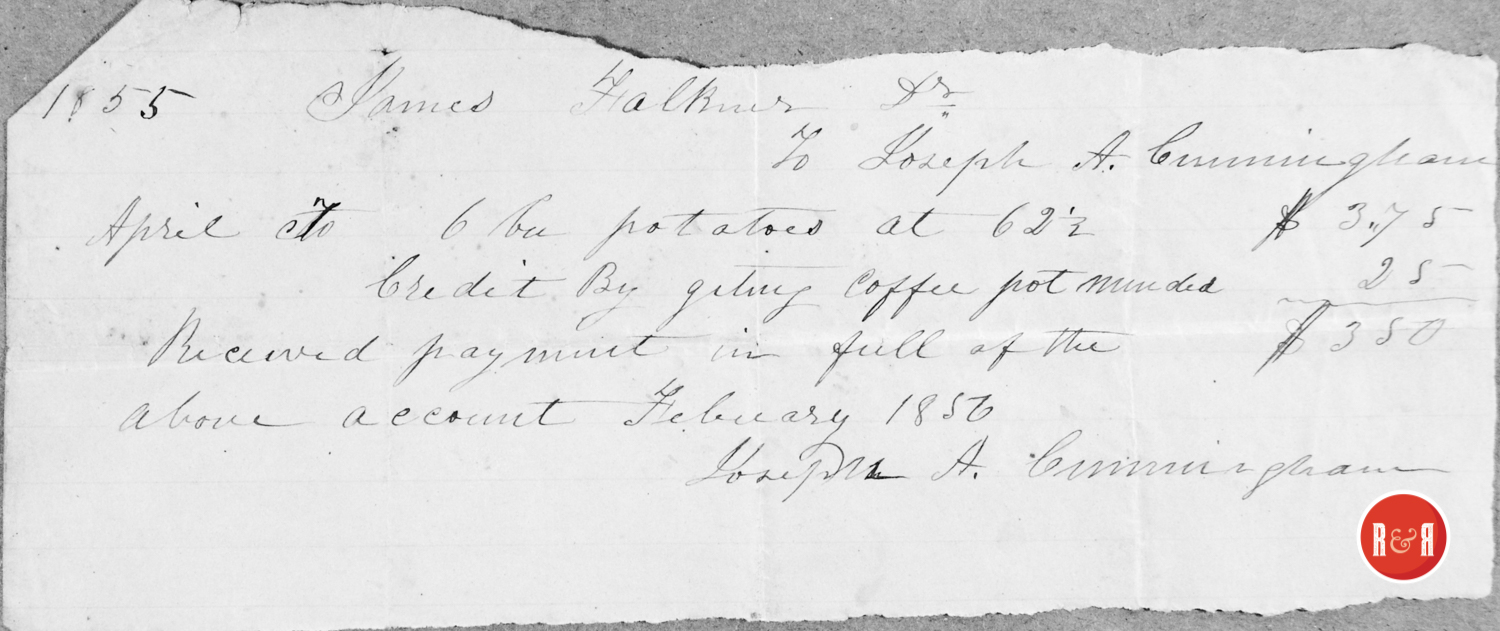 1855 James Falkner Dr
To Joseph A. Cunningham
April To 6 bu potatoes at 62½ $ 3.75
Credit By giting coffee pot minded 25
$ 350
Received payment in full of the
above account Febuary 1856
Joseph A. Cunningham
R&R